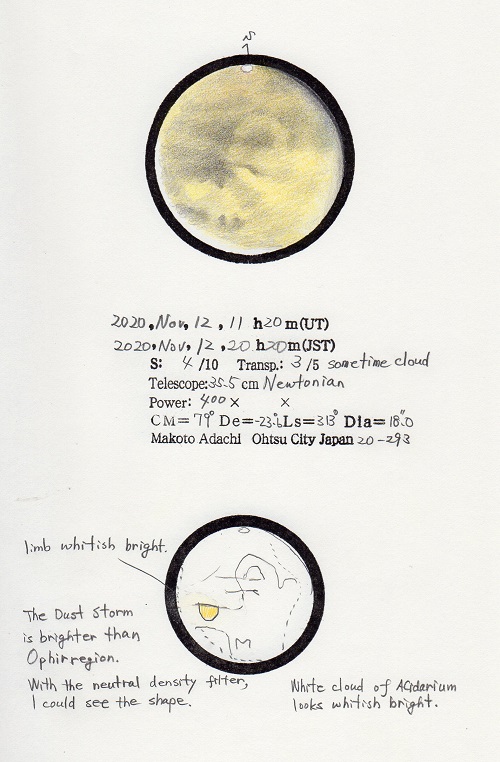 S
2020, Nov, 12, 11 h20m(UT)
2020, Nov, 12, 20 h20m(JST)
S: 4/10 Transp.: 3/5 sometime cloud
Telescope:35.5 cm Newtonian
Power: 400× ×
CM=79° De=-23.°6 Ls=313° Dia=18."0
Makoto Adachi Ohtsu City Japan 20-293
limb whitish bright.
The Dust Storm
is brighter than
Ophir region.
With the neutral density filter,
I could see the shape.
M
White cloud of Acidarium
looks whitish bright.